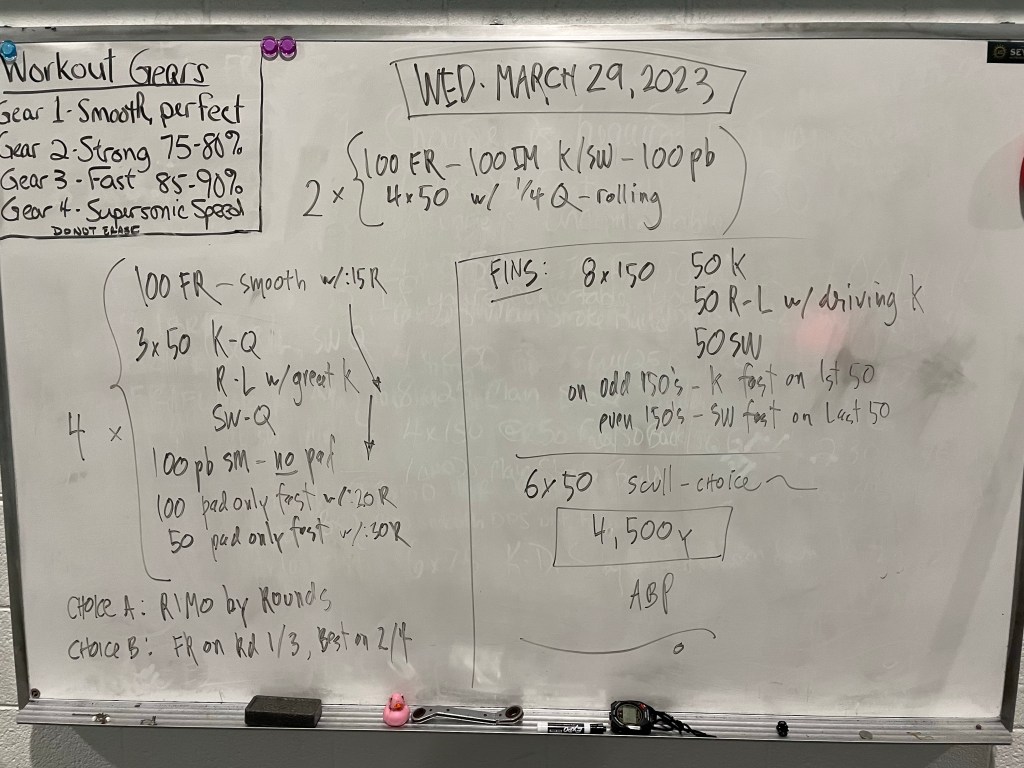 Workout Gears
Gear 1 - Smooth, perfect
Gear 2 - Strong 75-80%
Gear 3 - Fast 85-90%
Gear 4 - Supersonic Speed
DO NOT ERASE
WED. MARCH 29, 2023
2 x
100 FR - 100 IM K/SW - 100 pb
4x50 w/ 1/4 Q - rolling
4 x
100 FR - smooth w/:15R
3x50 K-Q
R-L w/great K
SW-Q
100 pb sm - no pad
100 pad only fast w/:20R
50 pad only fast w/:30R
CHOICE A: RIMO by Rounds
CHOICE B: FR on Rd 1/3, Best on 2/4
FINS: 8x150 50 K
50 R-L w/driving K
50 SW
on odd 150's - K fast on 1st 50
even 150's - SW fast on Last 50
6x50 scull - choice
4,500y
ABP
EXPO